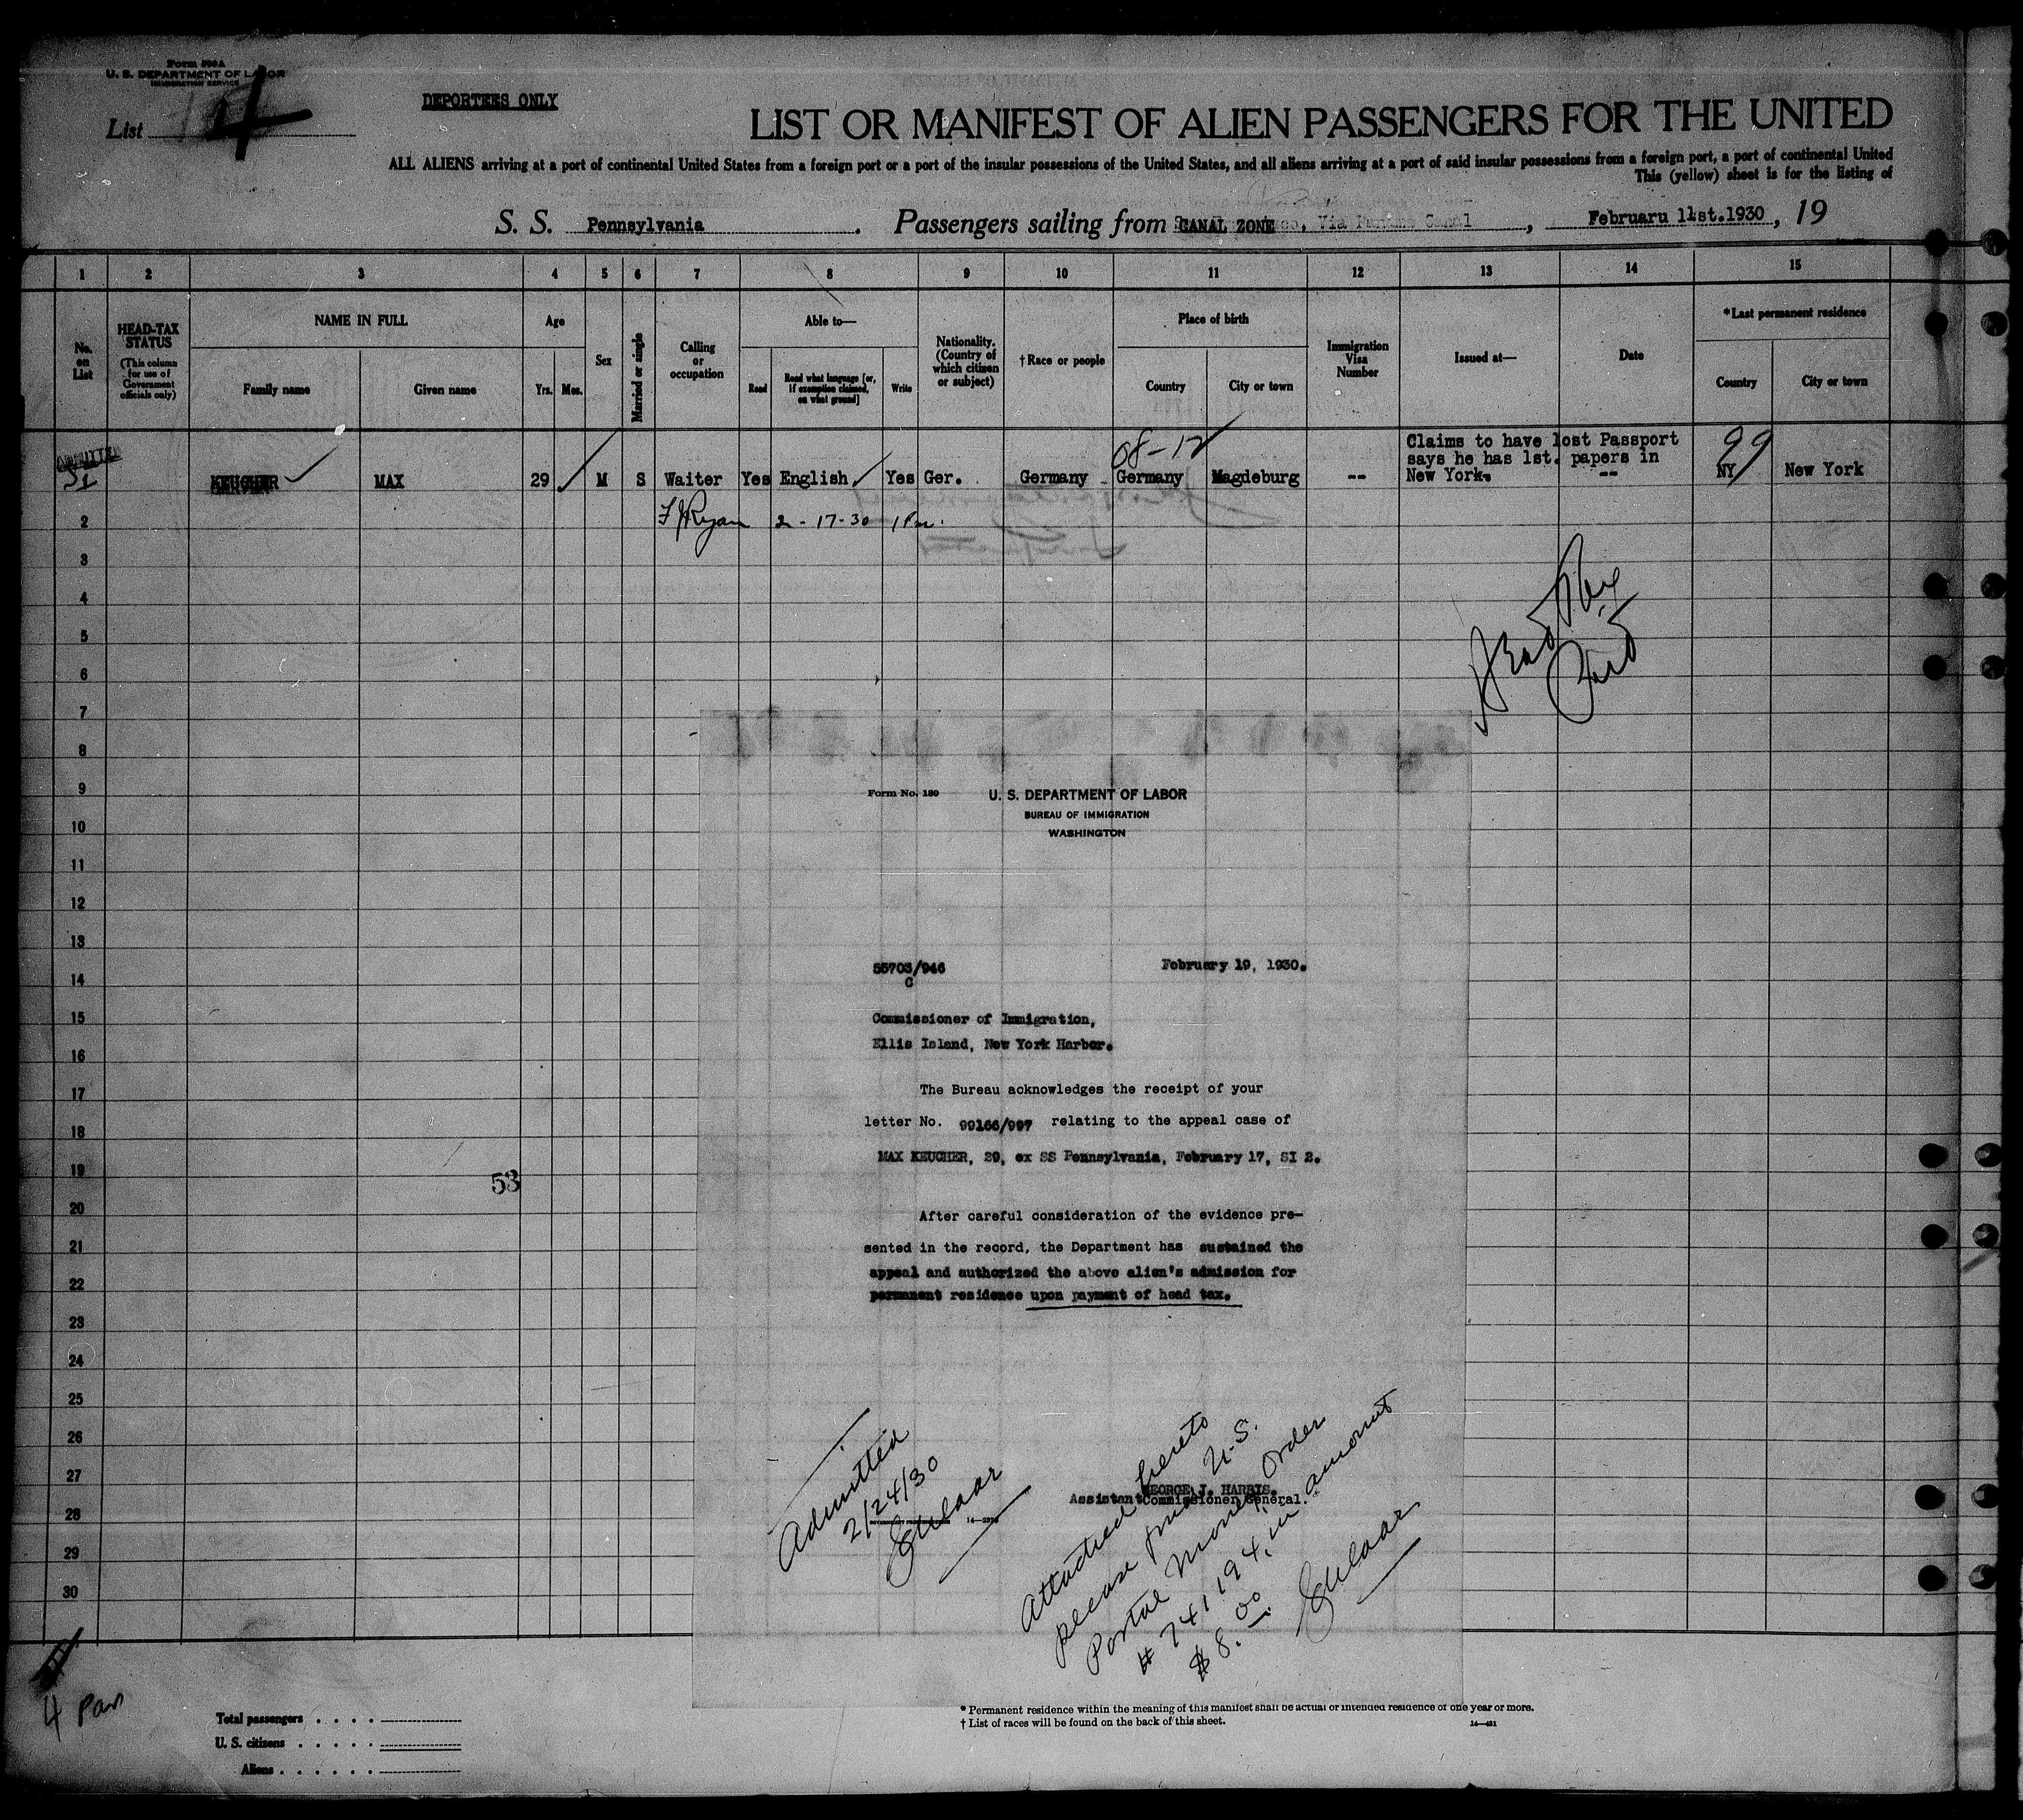 Form 500A
U. S. DEPARTMENT OF LABOR
IMMIGRATION SERVICE
List 4
DEPORTEES ONLY
LIST OR MANIFEST OF ALIEN PASSENGERS FOR THE UNITED
ALL ALIENS arriving at a port of continental United States from a foreign port or a port of the insular possessions of the United States, and all aliens arriving at a port of said insular possessions from a foreign port, a port of continental United
This (yellow) sheet is for the listing of
S. S. Pennsylvania. Passengers sailing from CANAL ZONE, Februaru 11st.1930, 19
1 2 3 4 5 6 7 8 9 10 11 12 13 14 15
No. on List
HEAD-TAX STATUS
(This column for use of Government officials only)
NAME IN FULL
Family name
Given name
Age
Yrs. Mos.
Sex
Married or single
Calling or occupation
Able to—
Read
Read what language [or, if exemption claimed, on what ground]
Write
Nationality. (Country of which citizen or subject)
†Race or people
Place of birth
Country
City or town
Immigration Visa Number
Issued at—
Date
*Last permanent residence
Country
City or town
ADMITTED
08-12
99
Claims to have lost Passport
says he has 1st. papers in
New York.
KEUCHER MAX 29 M S Waiter Yes English Yes Ger. Germany Germany Magdeburg -- -- NY New York
F J Ryan 2-17-30
2
3
4
5
6
7
8
9
10
11
12
13
14
15
16
17
18
19
20
21
22
23
24
25
26
27
28
29
30
Head Tax
Paid
53
Form No. 180
U. S. DEPARTMENT OF LABOR
BUREAU OF IMMIGRATION
WASHINGTON
55703/946
C
February 19, 1930.
Commissioner of Immigration,
Ellis Island, New York Harbor.
The Bureau acknowledges the receipt of your
letter No. 99166/997 relating to the appeal case of
MAX KEUCHER, 29, ex SS Pennsylvania, February 17, SI 2.
After careful consideration of the evidence pre-
sented in the record, the Department has sustained the
appeal and authorized the above alien's admission for
permanent residence upon payment of head tax.
GEORGE J. HARRIS.
Assistant Commissioner General.
Admitted
2/24/30
Attached hereto
please find U.S.
Postal Money Order
# 74194, in amount
$8.00.
4 Pas
Total passengers
U. S. citizens
Aliens
* Permanent residence within the meaning of this manifest shall be actual or intended residence of one year or more.
† List of races will be found on the back of this sheet.